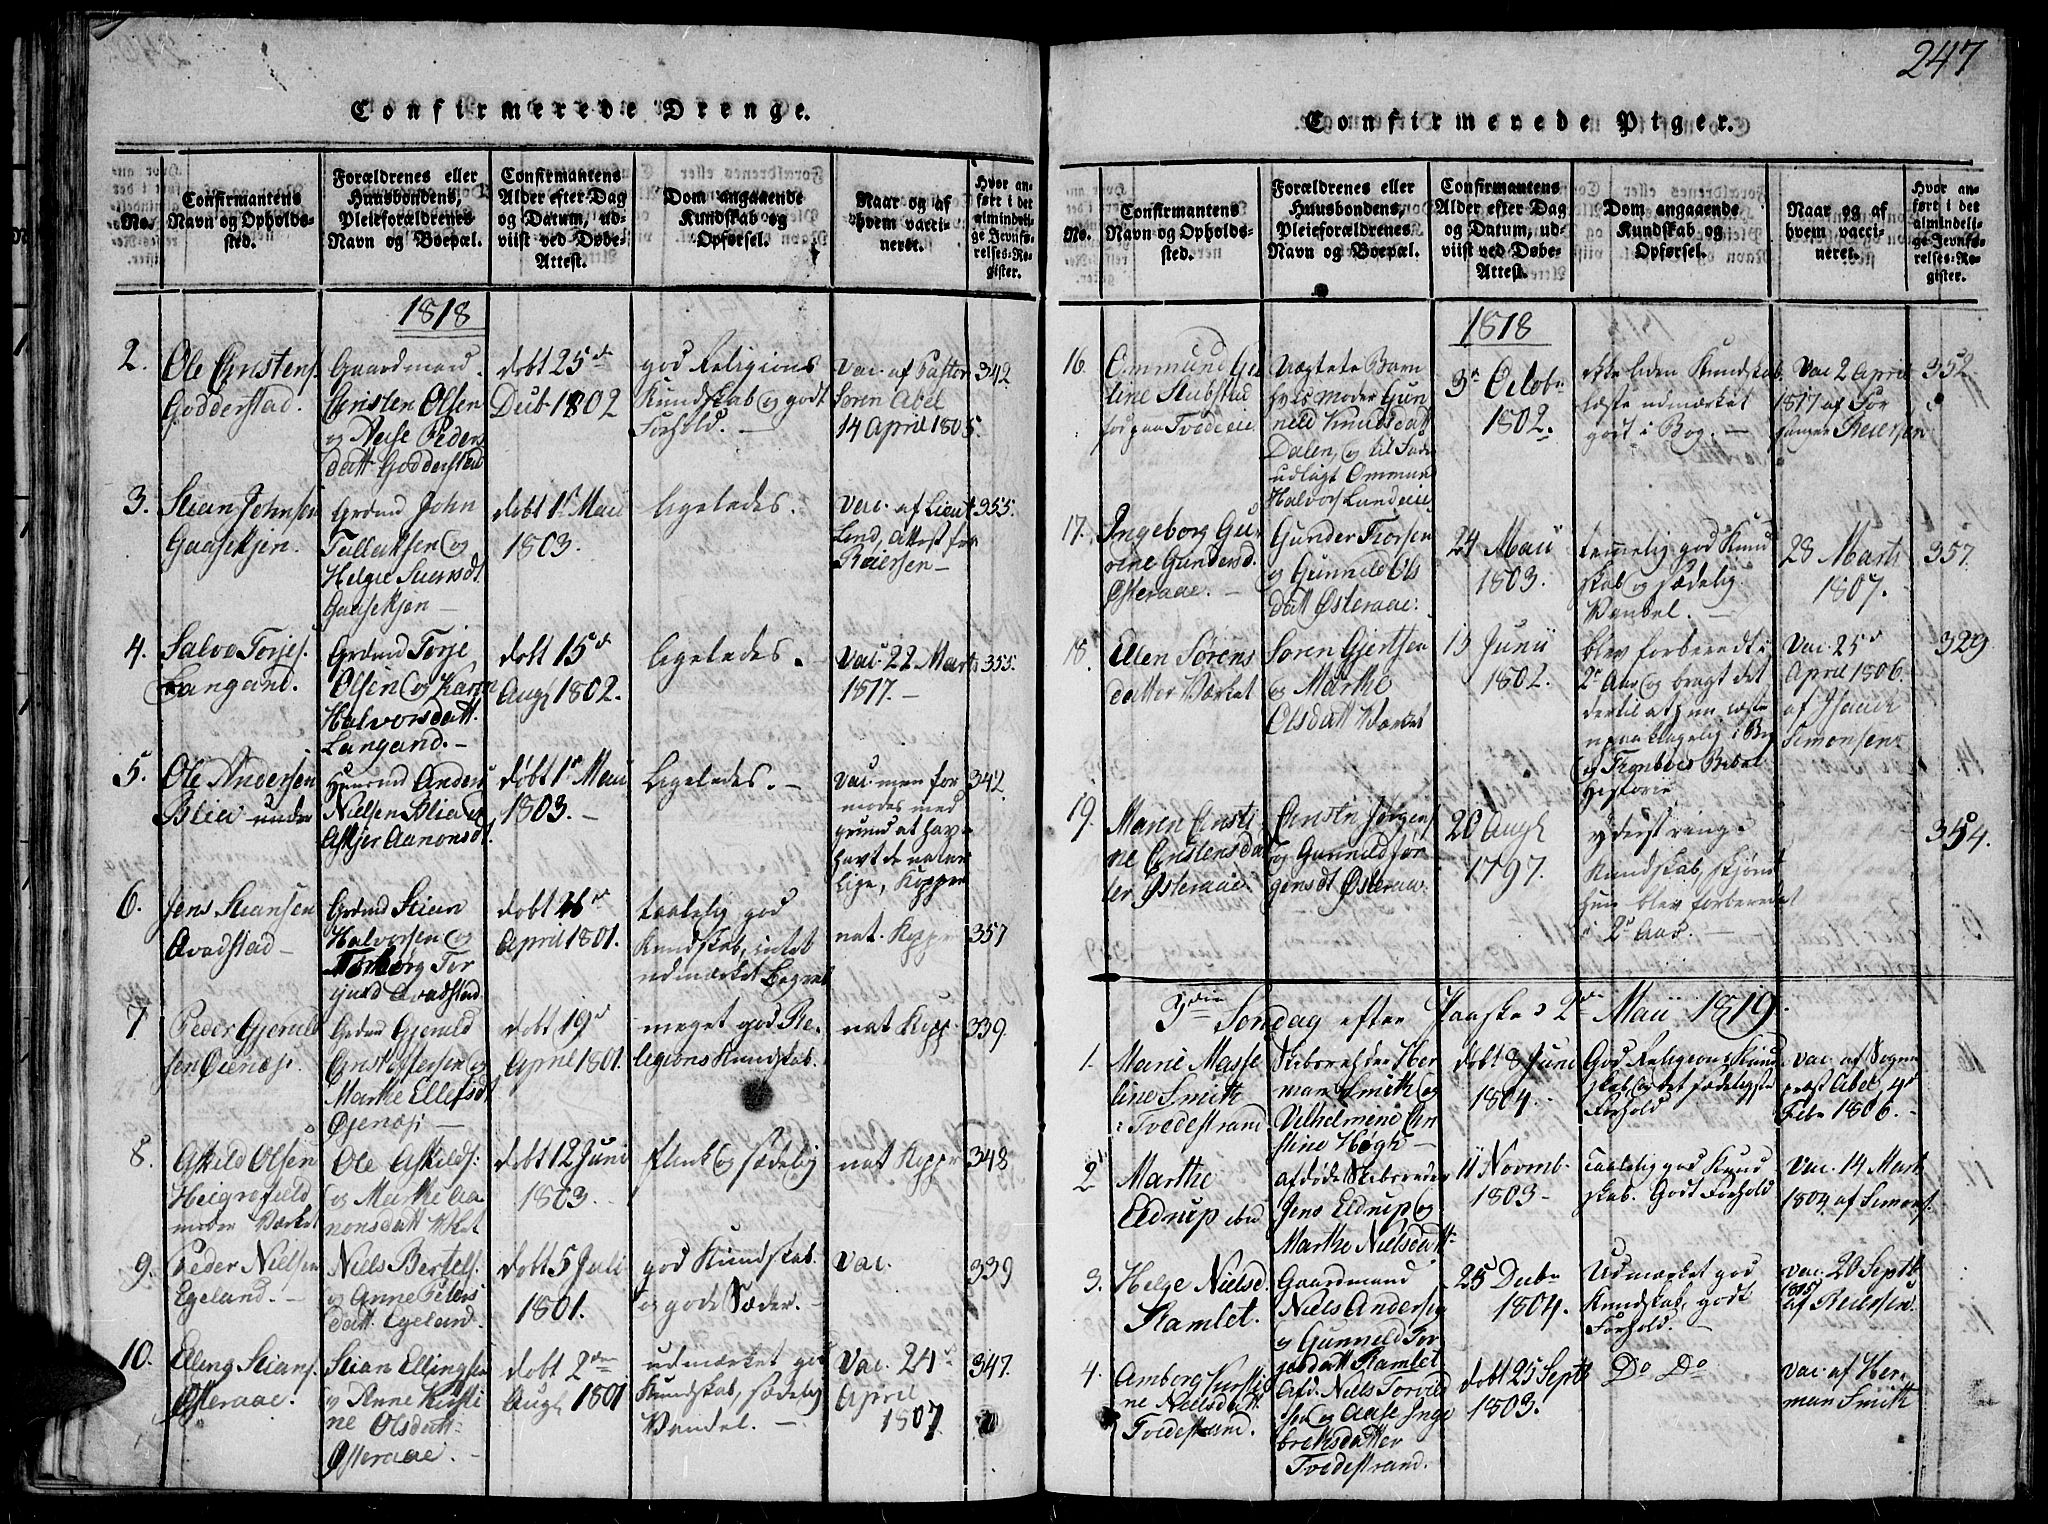 Confirmerede Drenge.
No.
Confirmantens
Navn og Opholds-
sted.
Forældrenes eller
Huusbondens,
Pleieforældrenes
Navn og Boepæl.
Confirmantens
Alder efter Dag
og Datum, ud-
viist ved Døbe-
Attest.
Dom angaaende
Kundskab og
Opførsel.
Naar og af
hvem vacci-
neret.
Hvor an-
ført i det
almindeli-
ge Jevnfø-
relses-Re-
gister.
1818
2.
Ole Cristens.
Godderstad.
Gaardmand.
Cristen Olsen
og Aase Peders
datt Godderstad
døbt 25de
Decbr 1802
god Religions
Kundskab og godt
Forhold. —
Vac. af Pastor
Søren Abel
14 April 1805.
342.
3.
Stian Johnsen
Gaasekjen.
Grdmd John
Tallaksen og
Helge Siversdt
Gaasekjen —
døbt 1ste Maii
1803.
ligeledes.
Vac. af Lieut
Lind, Attest fra
Reiersen —
355.
4.
Salve Torjes.
Langand.
Grdmd Torje
Olsen og Karen
Halvorsdatt.
Langand. —
døbt 15de
Augt 1802.
ligeledes. —
Vac. 22 Marts
1817. —
355.
5.
Ole Andersen
Hmand Anders
Nielsen
Askjer Aanonsdt.
døbt 1ste Maii
1803. —
ligeledes. —
Vac. men for
modes med
grund at have
havt de natur
lige, Kopper
342.
6.
Jens Stiansen
Avadstad —
Grdmd Stian
Halvorsen og
Torborg Tor
Avadstad
døbt 26de
April 1801.
taalelig god
Kundskab, intet
udmærket Begreb
nat. Kopp
357
7
Peder Gjeruld
sen Øienæs.
Grdmd Gjeruld
Cristoffersen og
Marthe Ellefsdt
Øjenæs —
døbt 19de
April 1801.
meget god Re-
ligions Kundskab.
nat Kopp.
339.
8.
Askild Olsen
Heigrefield
Værket
Ole Askilds:
og Marthe Aa
nonsdatt
døbt 12 Juni
1803. —
flink og sædelig
nat Kopp
348
9.
Peder Nielsen
Egeland. —
Niels Bertels.
og Anne Peders
datt. Egeland.
døbt 5 Juli
1801.
god Kundskab
og gode Sæder. —
Vac.
339
10.
Elling Stians.
Østeraae.
Stian Ellingsen
og Anne Kirsti
ne Olsdatt
Østeraae. —
døbt 2den
Augt 1801
udmærket god
Kundskab, sædelig
Vandel. —
Vac. 24de
April
1807.
347.
247
Confirmerede Piger.
No.
Confirmantens
Navn og Opholds-
sted.
Forældrenes eller
Huusbondens,
Pleieforældrenes
Navn og Boepæl.
Confirmantens
Alder efter Dag
og Datum, ud-
viist ved Døbe-
Attest.
Dom angaaende
Kundskab og
Opførsel.
Naar og af
hvem vacci-
neret.
Hvor an-
ført i det
almindeli-
ge Jevnfø-
relses-Re-
gister.
1818
16.
Ommund Ge
line Stubstad
Uægtete Barn
hvis moder Gun
neld Knudsdatt
Dalen, og til Fader
udlagt Ommund
Halvors Lundeie
3de Octobr
1802.
ikke liden Kundskab
læste udmærket
godt i Bog. —
Vac 2 April
1817 af For
sanger Reiersen
352
17.
Ingeborg Gu-
rine Gundersd.
Østeraae. —
Gunder Torsen
og Gunnild Ols
datt Østeraae.
24 Maii
1803.
temmelig god Kund
skab og sædelig
Vandel. —
28 Marts
1807.
357.
18.
Ellen Sørens
datter Værket
Søren Gjertsen
og Marthe
Olsdatt Værket
13 Junii
1802.
blev forberedt i
2de Aar og bragt det
dertil at hun læste
upaaklagelig i Bog
Historie
Vac. 25de
April 1806.
af Isaach
Simonsen
329
19.
Maren Cristi
ne Cristensdat
ter Østeraae.
Cristen Jørgens
og Gunneld Jør
gensdt Østeraae.
20 Augt
1797.
yderst ringe
Kundskab, skjønt
hun blev forberedet
i 2de Aar. —
354.
3die Søndag efter Paaske, 2den Maii 1819.
1.
Marie Masse
line Smith
Tvedestrand
Skibsreeder Her
man Smith og
Vilhelmine Cri
stine Høgh —
døbt 8 Juni
1804. —
God Religions Kund
skab og det sædeligste
Forhold
Vac. af Sogne
præst Abel 4de
Febr 1806. —
2
Marthe
Eldrup ibid
afdøde Skibsreder
Jens Eldrup og
Marthe Nielsdatt
11 Novemb.
1803 —
Taalelig god Kund
skab. Godt Forhold
Vac. 14. Mart
1804 af Simons.
3.
Helge Nielsd.
Ramlet.
Gaardmand
Niels Andersen
og Gunneld Tor
jersdatt Ramlet
25 Decbr
1804.
Udmærket god
Kundskab, godt
Forhold. —
Vac. 20 Septb
1815
af Reiersen.
4.
Amborg Kirsti
ne Nielsdatt.
Tvedestrand.
Afd. Niels Torvild
sen og Aase Inge
brektsdatter
Tvedestrand.
døbt 25 Septb
1803.
Do Do
Vac. af Her
man Smith